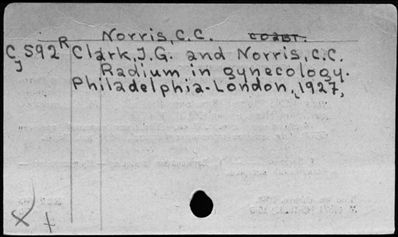 Norris, C.C.
C592R Clark, J.G. and Norris, C.C.
J
Radium in gynecology.
Philadelphia-London, 1927,